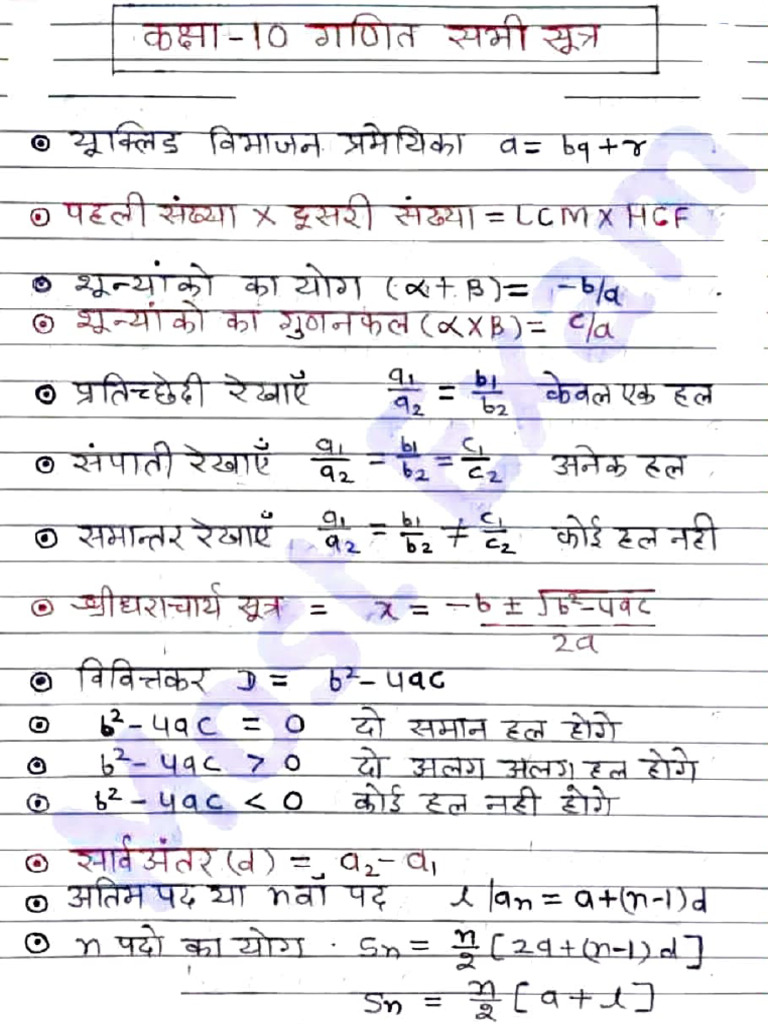 कक्षा-10 गणित सभी सूत्र
यूक्लिड विभाजन प्रमेयिका a = bq + r
पहली संख्या × दूसरी संख्या = LCM × HCF
शून्यांको का योग (α + β) = -b/a
शून्यांको का गुणनफल (α × β) = c/a
प्रतिच्छेदी रेखाएँ a₁/a₂ = b₁/b₂ केवल एक हल
संपाती रेखाएँ a₁/a₂ = b₁/b₂ = c₁/c₂ अनेक हल
समान्तर रेखाएँ a₁/a₂ = b₁/b₂ ≠ c₁/c₂ कोई हल नही
श्रीधराचार्य सूत्र = x = -b ± √b²-4ac / 2a
विवित्तकर D = b² - 4ac
b² - 4ac = 0 दो समान हल होगे
b² - 4ac > 0 दो अलग अलग हल होगे
b² - 4ac < 0 कोई हल नही होगे
सार्व अंतर (d) = a₂ - a₁
अंतिम पद या nवाँ पद l/aₙ = a + (n-1)d
n पदो का योग Sₙ = n/2 [2a + (n-1)d]
Sₙ = n/2 [a + l]
Most Exam